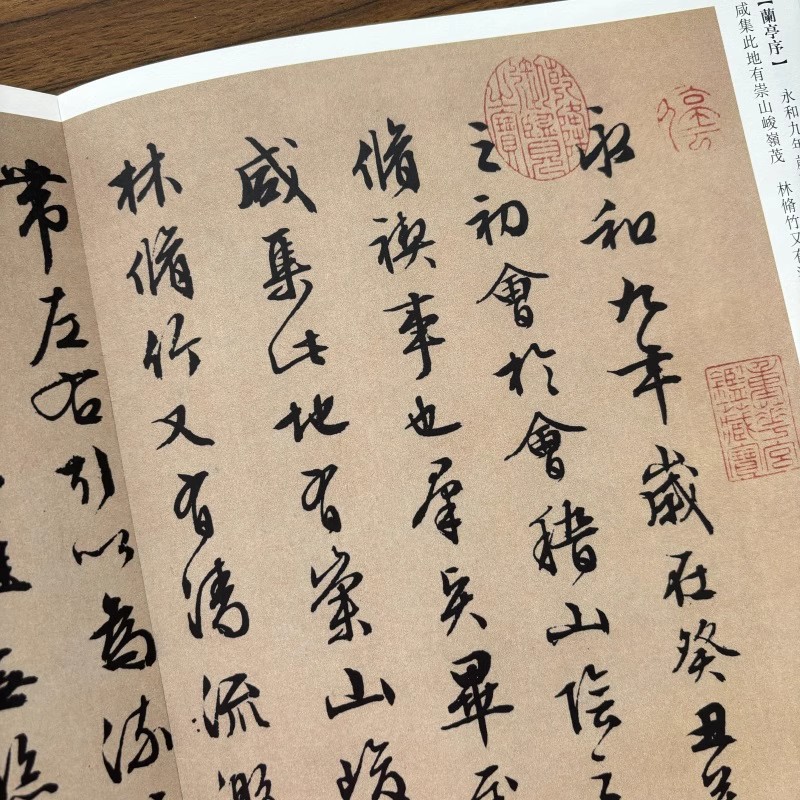 【蘭亭序】 永和九年
咸集此地有崇山峻嶺茂 林脩竹又有
永和九年歲在癸丑
之初會於會稽山陰之
脩禊事也羣賢畢至
咸集此地有崇山峻
林脩竹又有清流激
帶左右引以為流
乾隆御覽之寶
重華宮鑑藏寶